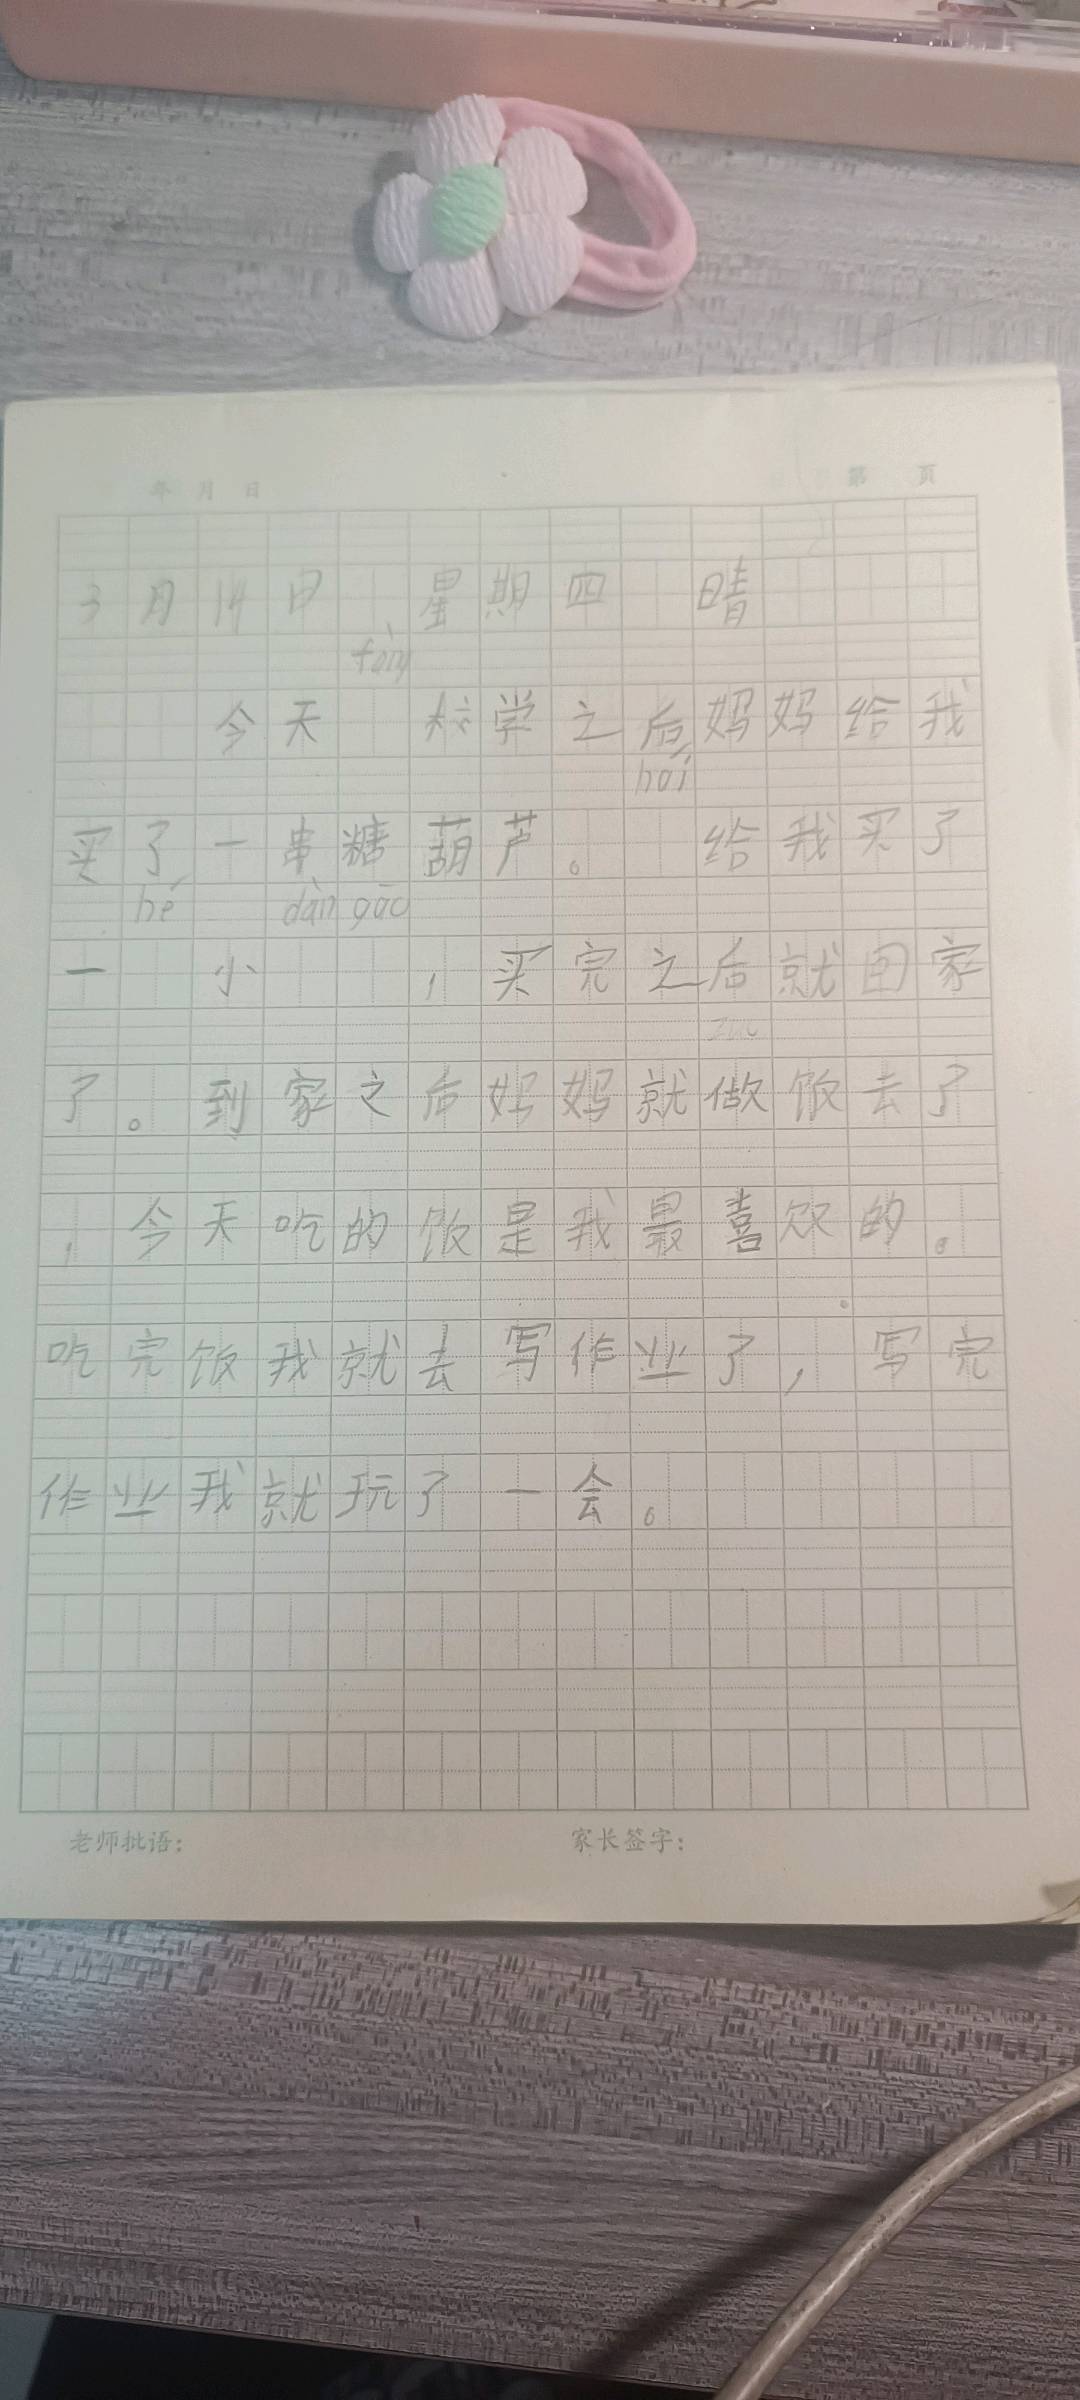 年 月 日 第 页
3月14日 星期四 晴
fàng
今天 校学之后妈妈给我
hái
买了一串糖葫芦。 给我买了
hé dàn gāo
一 小 ，买完之后就回家
zuò
了。到家之后妈妈就做饭去了
，今天吃的饭是我最喜欢的。
吃完饭我就去写作业了，写完
作业我就玩了一会。
老师批语： 家长签字：